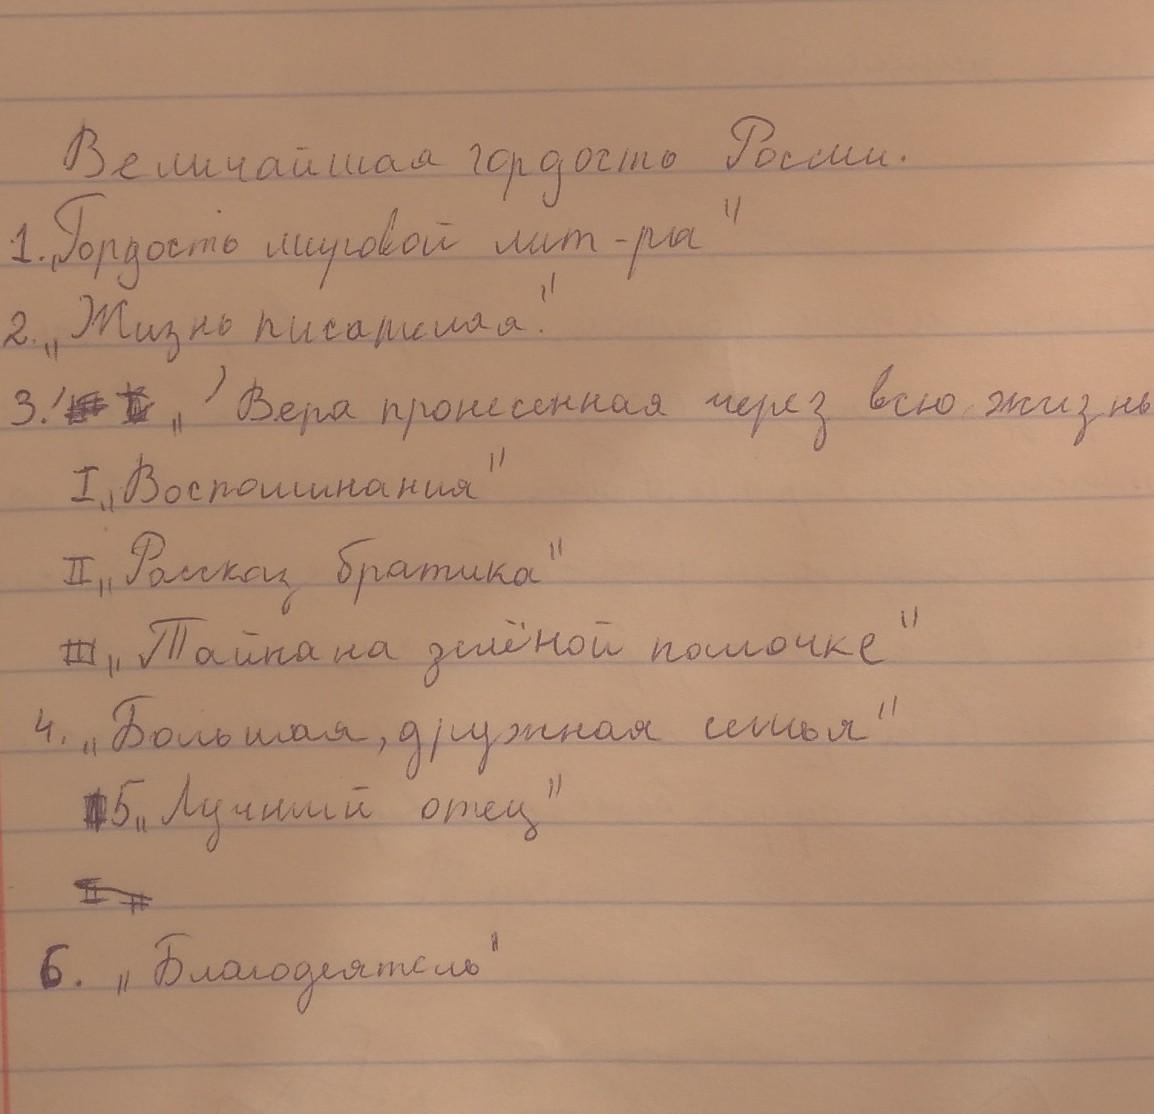 Величайшая гордость России.
1. „Гордость мировой лит-ра"
2. „Жизнь писателяя."
3. „Вера пронесенная через всю жизнь
I „Воспоминания"
II „Рассказ братика"
III „Тайна на зелёной палочке"
4. „Большая, дружная семья"
5 „Лучший отец"
6. „Благодеятель"